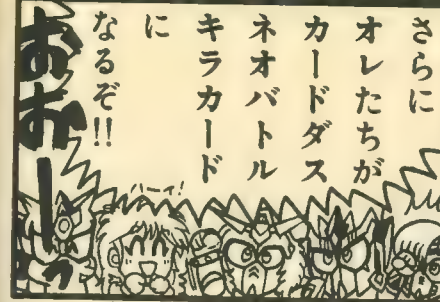 さらに
オレたちが
カードダス
ネオバトル
キラカード
に
なるぞ!!
おおーっ
ハーイ!